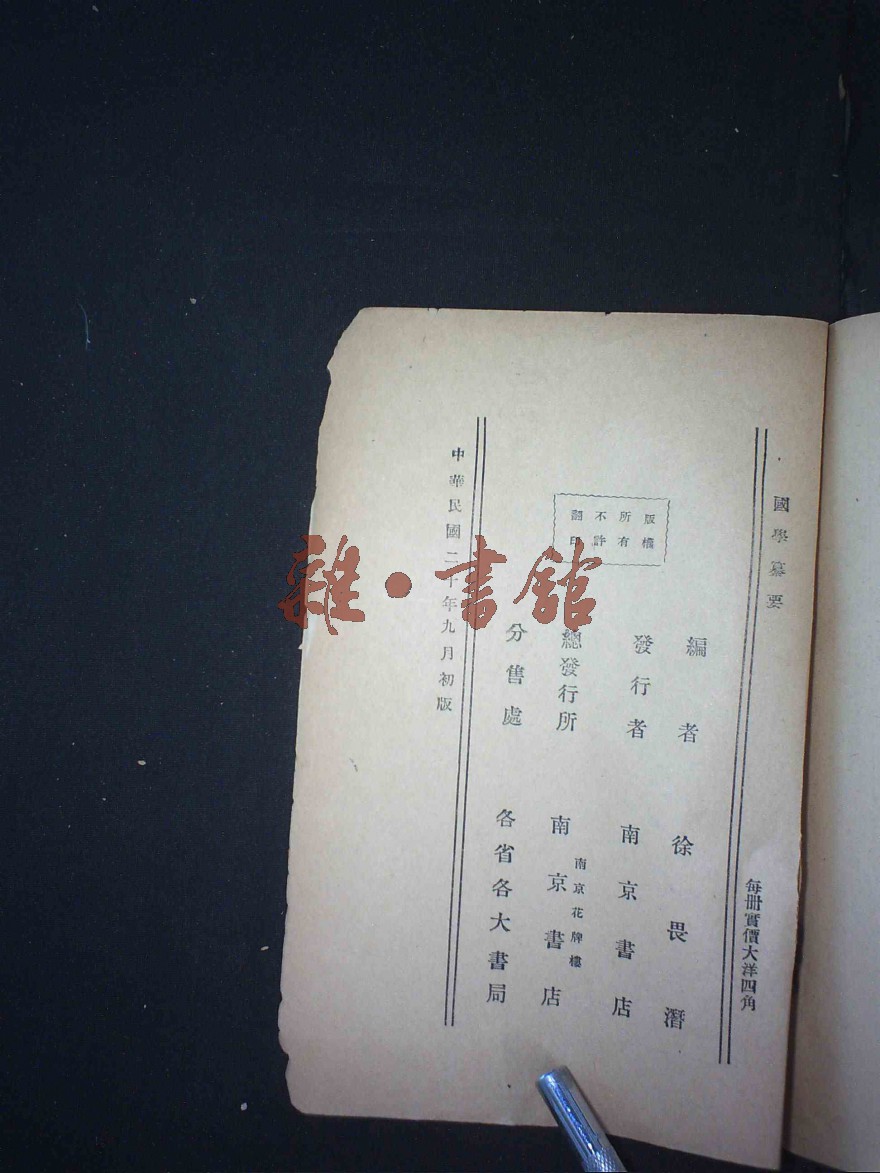 國學纂要
每冊實價大洋四角
編者 徐畏潛
發行者 南京書店
南京花牌樓
總發行所 南京書店
分售處 各省各大書局
版權
所有
不許
翻印
中華民國二十年九月初版
雜·書館